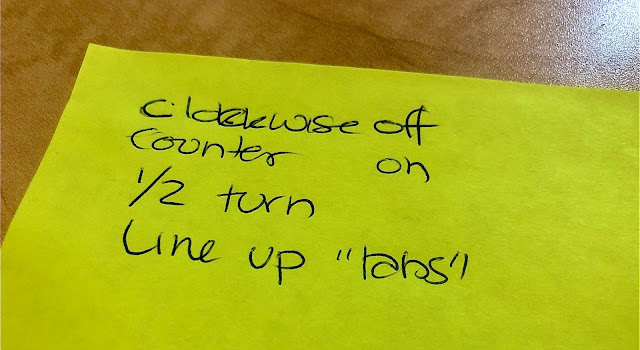 clockwise off
counter on
1/2 turn
Line up "tabs"